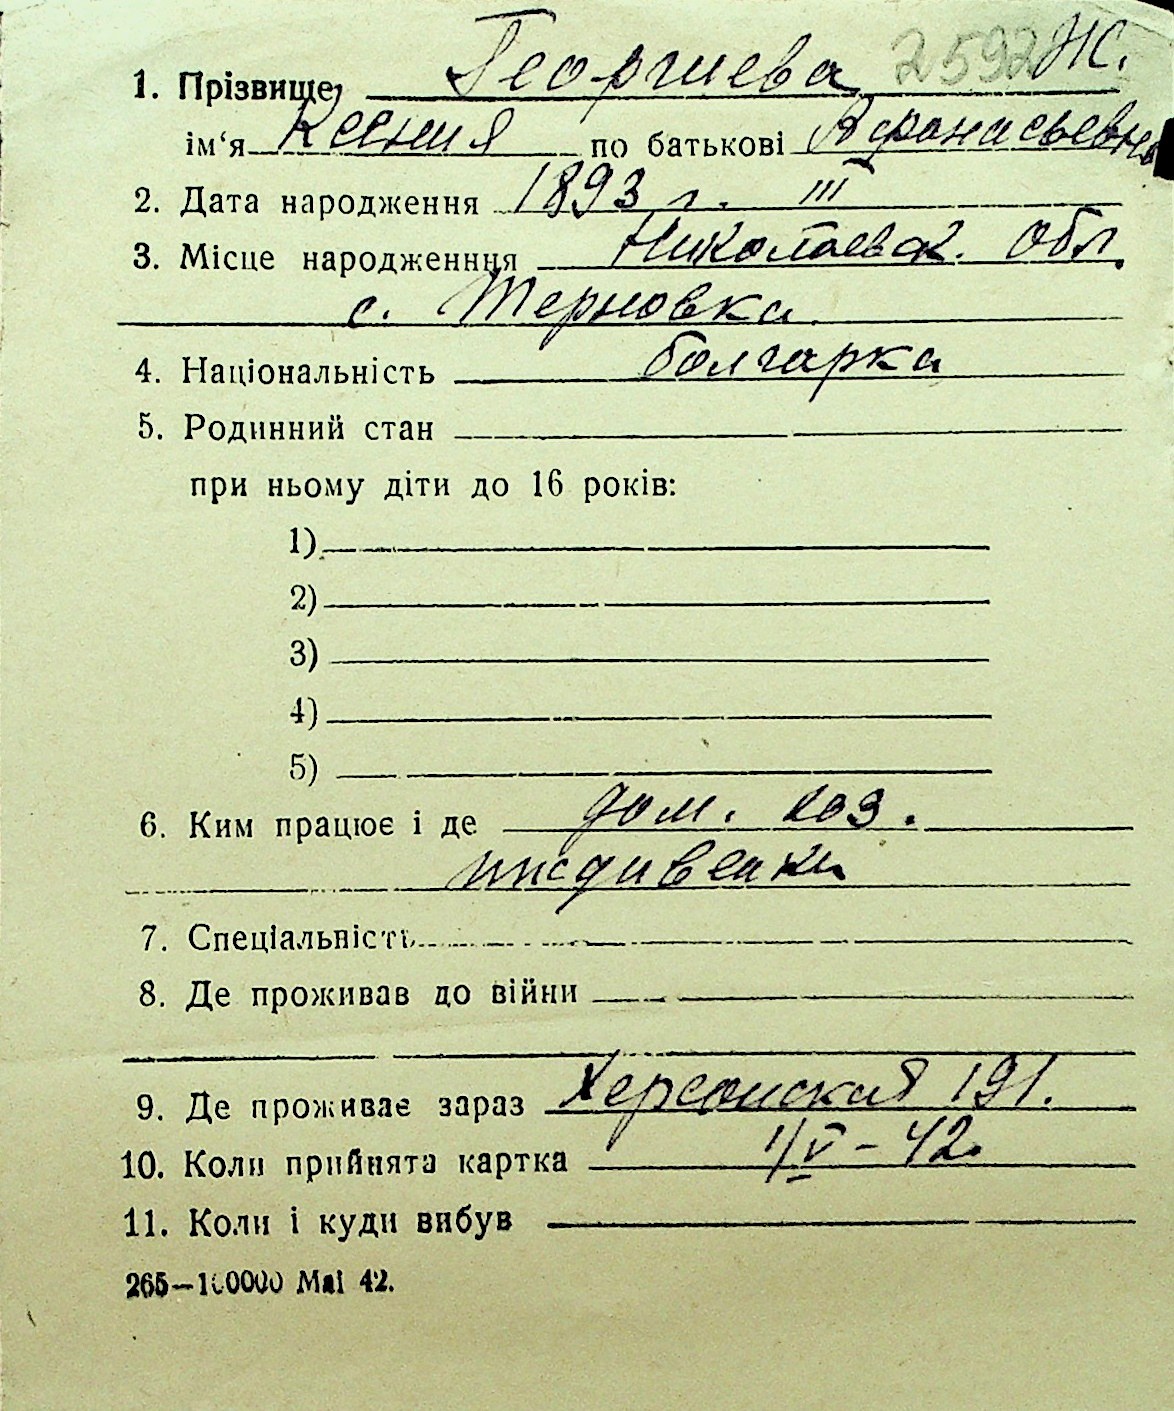 2592 Ж.
1. Прізвище Георгиева
ім‘я Ксения по батькові Афанасьевна
2. Дата народження 1893 г. III
3. Місце народженння Николаевск. обл.
с. Терновка
4. Національність болгарка
5. Родинний стан
при ньому діти до 16 років:
1)
2)
3)
4)
5)
6. Ким працює і де дом. хоз.
иждивенка
7. Спеціальність
8. Де проживав до війни
9. Де проживає зараз Херсонская 191.
10. Коли прийнята картка 1/V – 42.
11. Коли і куди вибув
265—100000 Mai 42.